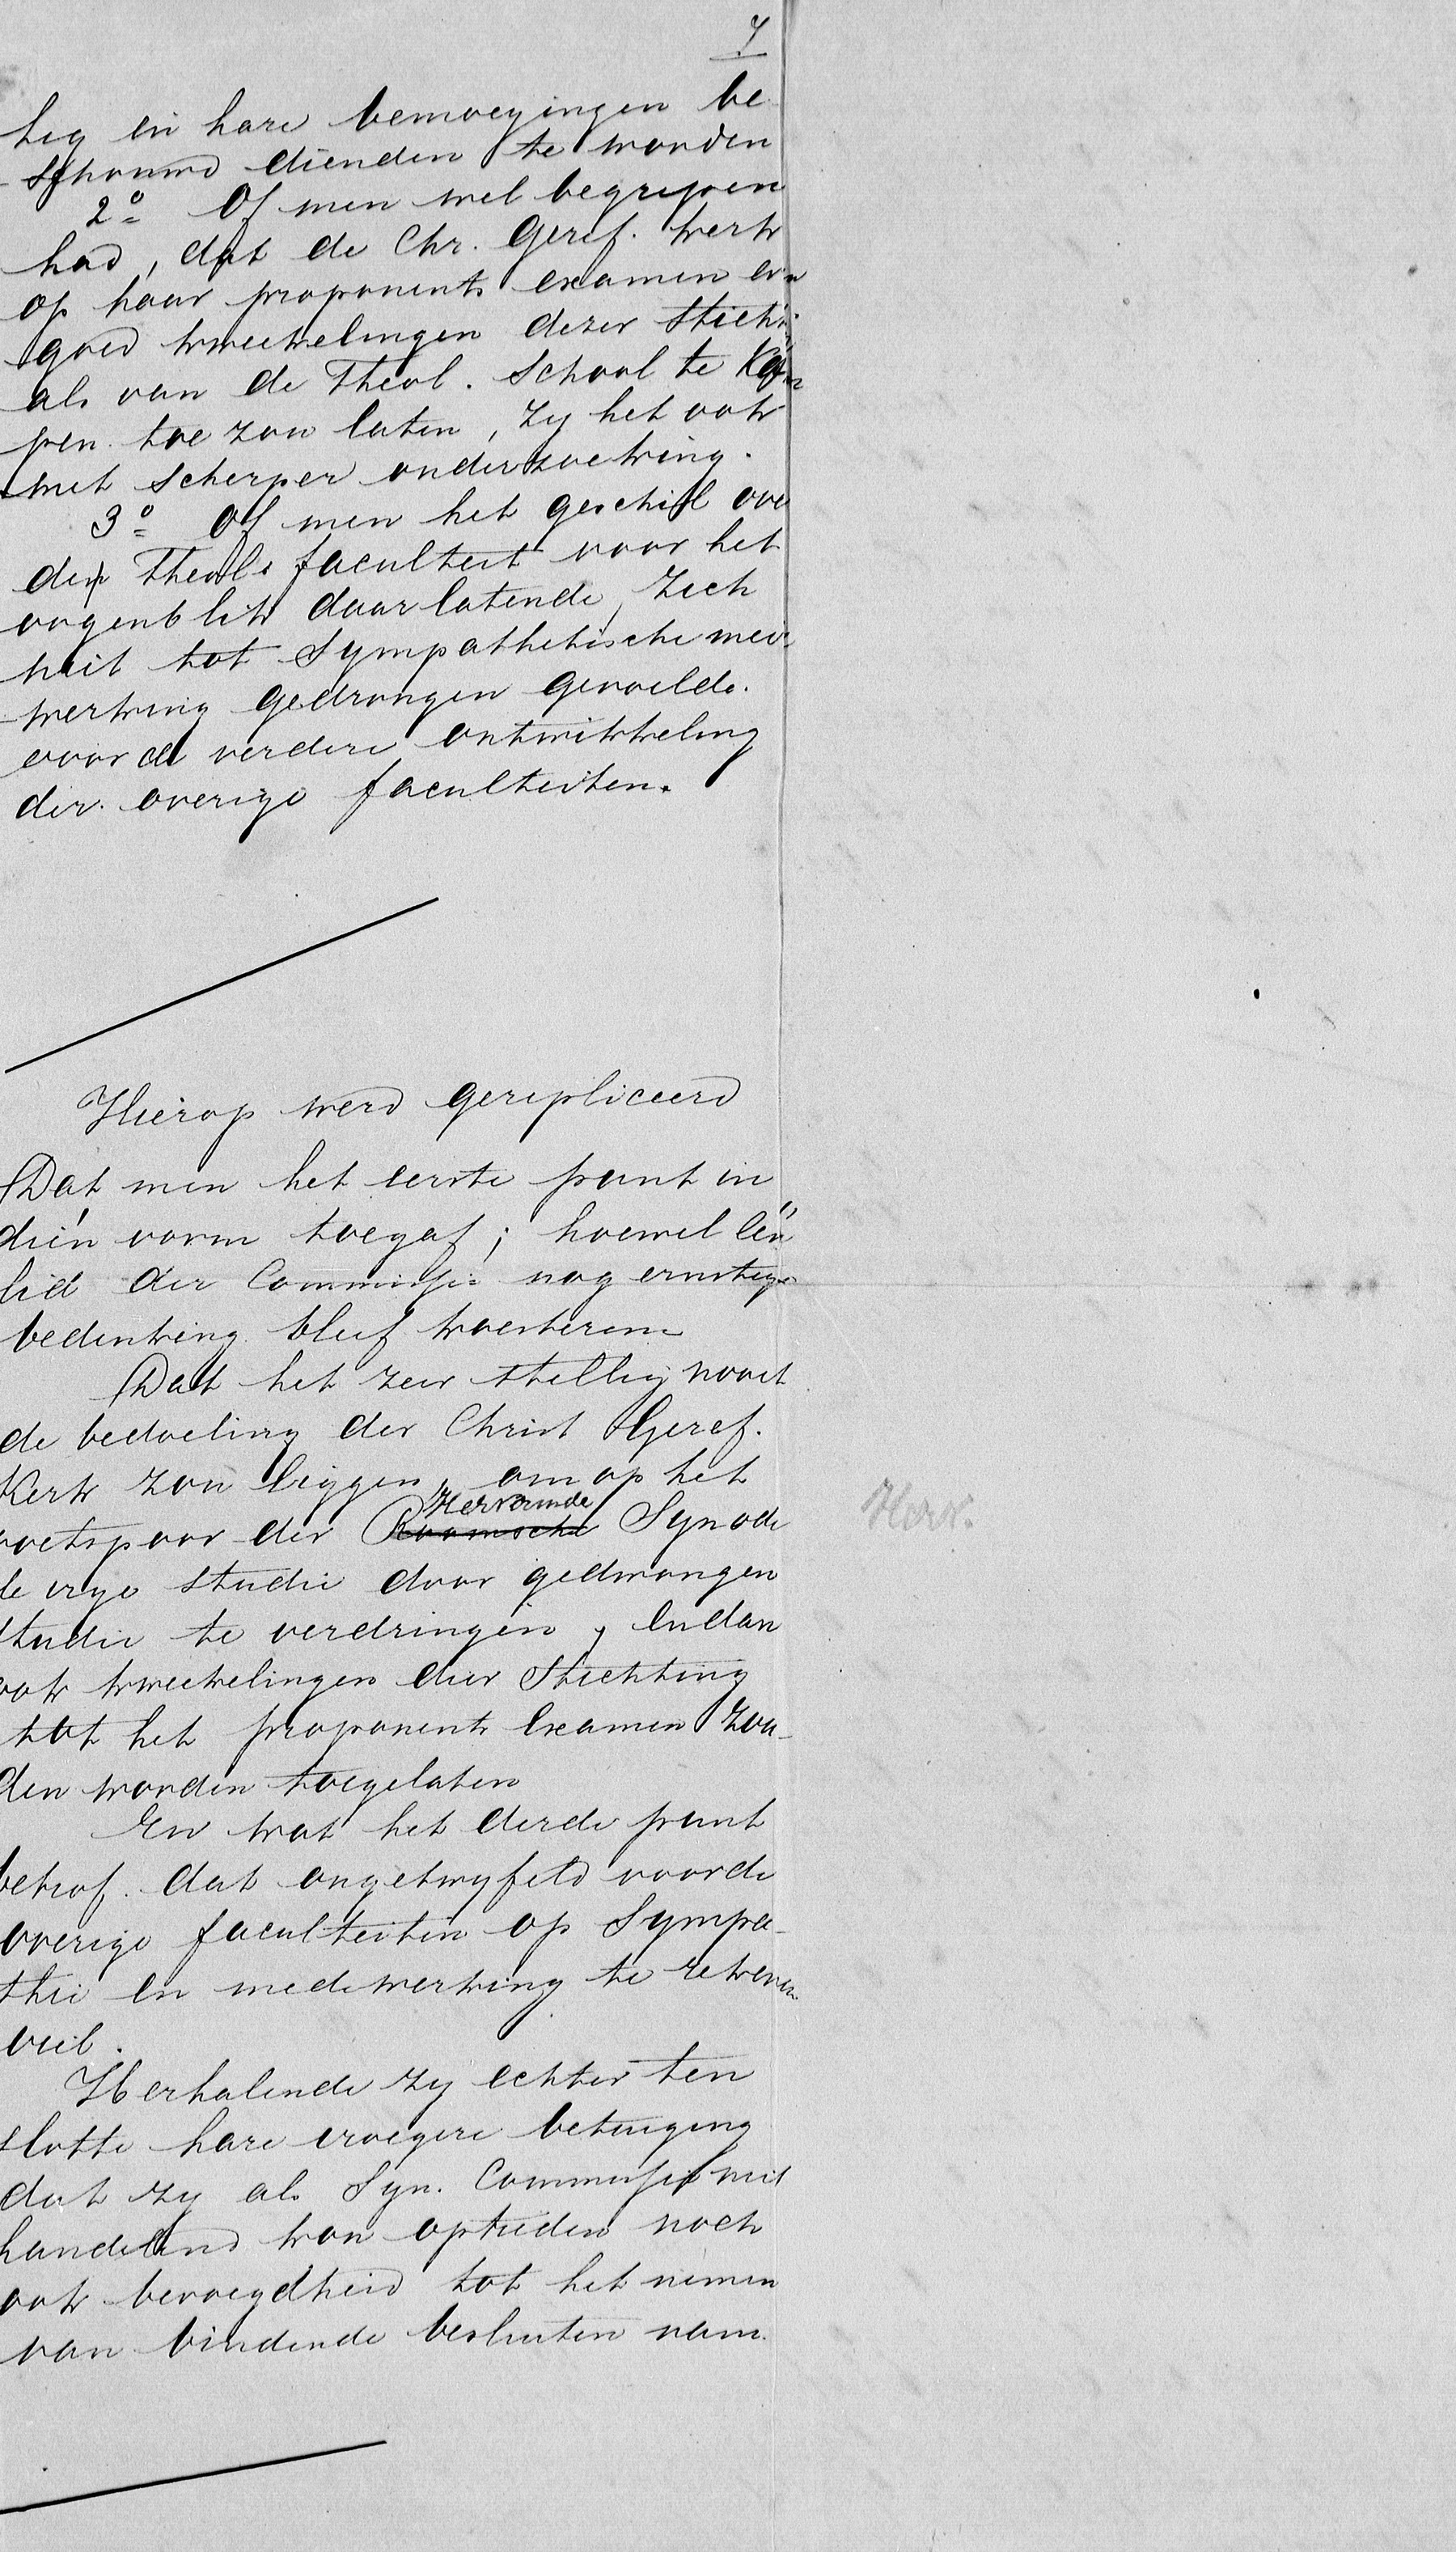 7
tig in hare bemoeyingen be
schouwd dienden te worden
2o Of men wel begrepen
had, dat de Chr. Geref. kerk
op haar proponents examen even
goed kweekelingen dezer Sticht.
als van de Theol. School te Kam
pen toe zou laten, zy het ook
met scherper onderzoeking.
3o Of men het geschil over
den Theol. faculteit voor het
oogenblik daarlatende, zich
niet tot Sympathetische mede
werking gedrongen gevoelde.
voor de verdere ontwikkeling
der overige faculteiten.
Hierop werd gerepliceerd
Dat men het eerste punt in
dién vorm toegaf; hoewel één
lid der Commissie nog ernstige
bedenking bleef koesteren
Dat het zeer stellig nooit
de bedoeling der Christ Geref.
Kerk zou liggen, om op het
Hervormde
voetspoor der Roomsche Synode
de vrye studie door gedwongen
studie te verdringen, en dan
ook kweekelingen der Stichting
tot het proponents examen zou-
den worden toegelaten
En wat het derde punt
betrof. dat ongetwyfeld voor de
overige faculteiten op Sympa-
thie en medewerking te rekenen
viel.
Herhalende zy echter ten
slotte hare vroegere betuiging
dat zy als Syn. Commissie niet
handelend kon optreden noch
ook bevoegdheid tot het nemen
van bindende besluiten nam.
Herv.